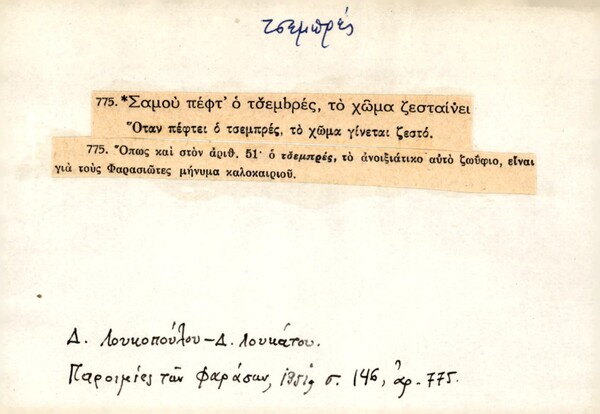 τσεμπρές
775. *Σαμοὺ πέφτ' ὁ τσ̌εμbρές, τὸ χῶμα ζεσταίνει
Ὅταν πέφτει ὁ τσεμπρές, τὸ χῶμα γίνεται ζεστό.
775. Ὅπως καὶ στὸν ἀριθ. 51· ὁ τσ̌εμπρές, τὸ ἀνοιξιάτικο αὐτὸ ζωΰφιο, εἶναι
γιὰ τοὺς Φαρασιῶτες μήνυμα καλοκαιριοῦ.
Δ. Λουκοπούλου – Δ. Λουκάτου.
Παροιμίες τῶν Φαράσων, 1951, σ. 146, ἀρ. 775.